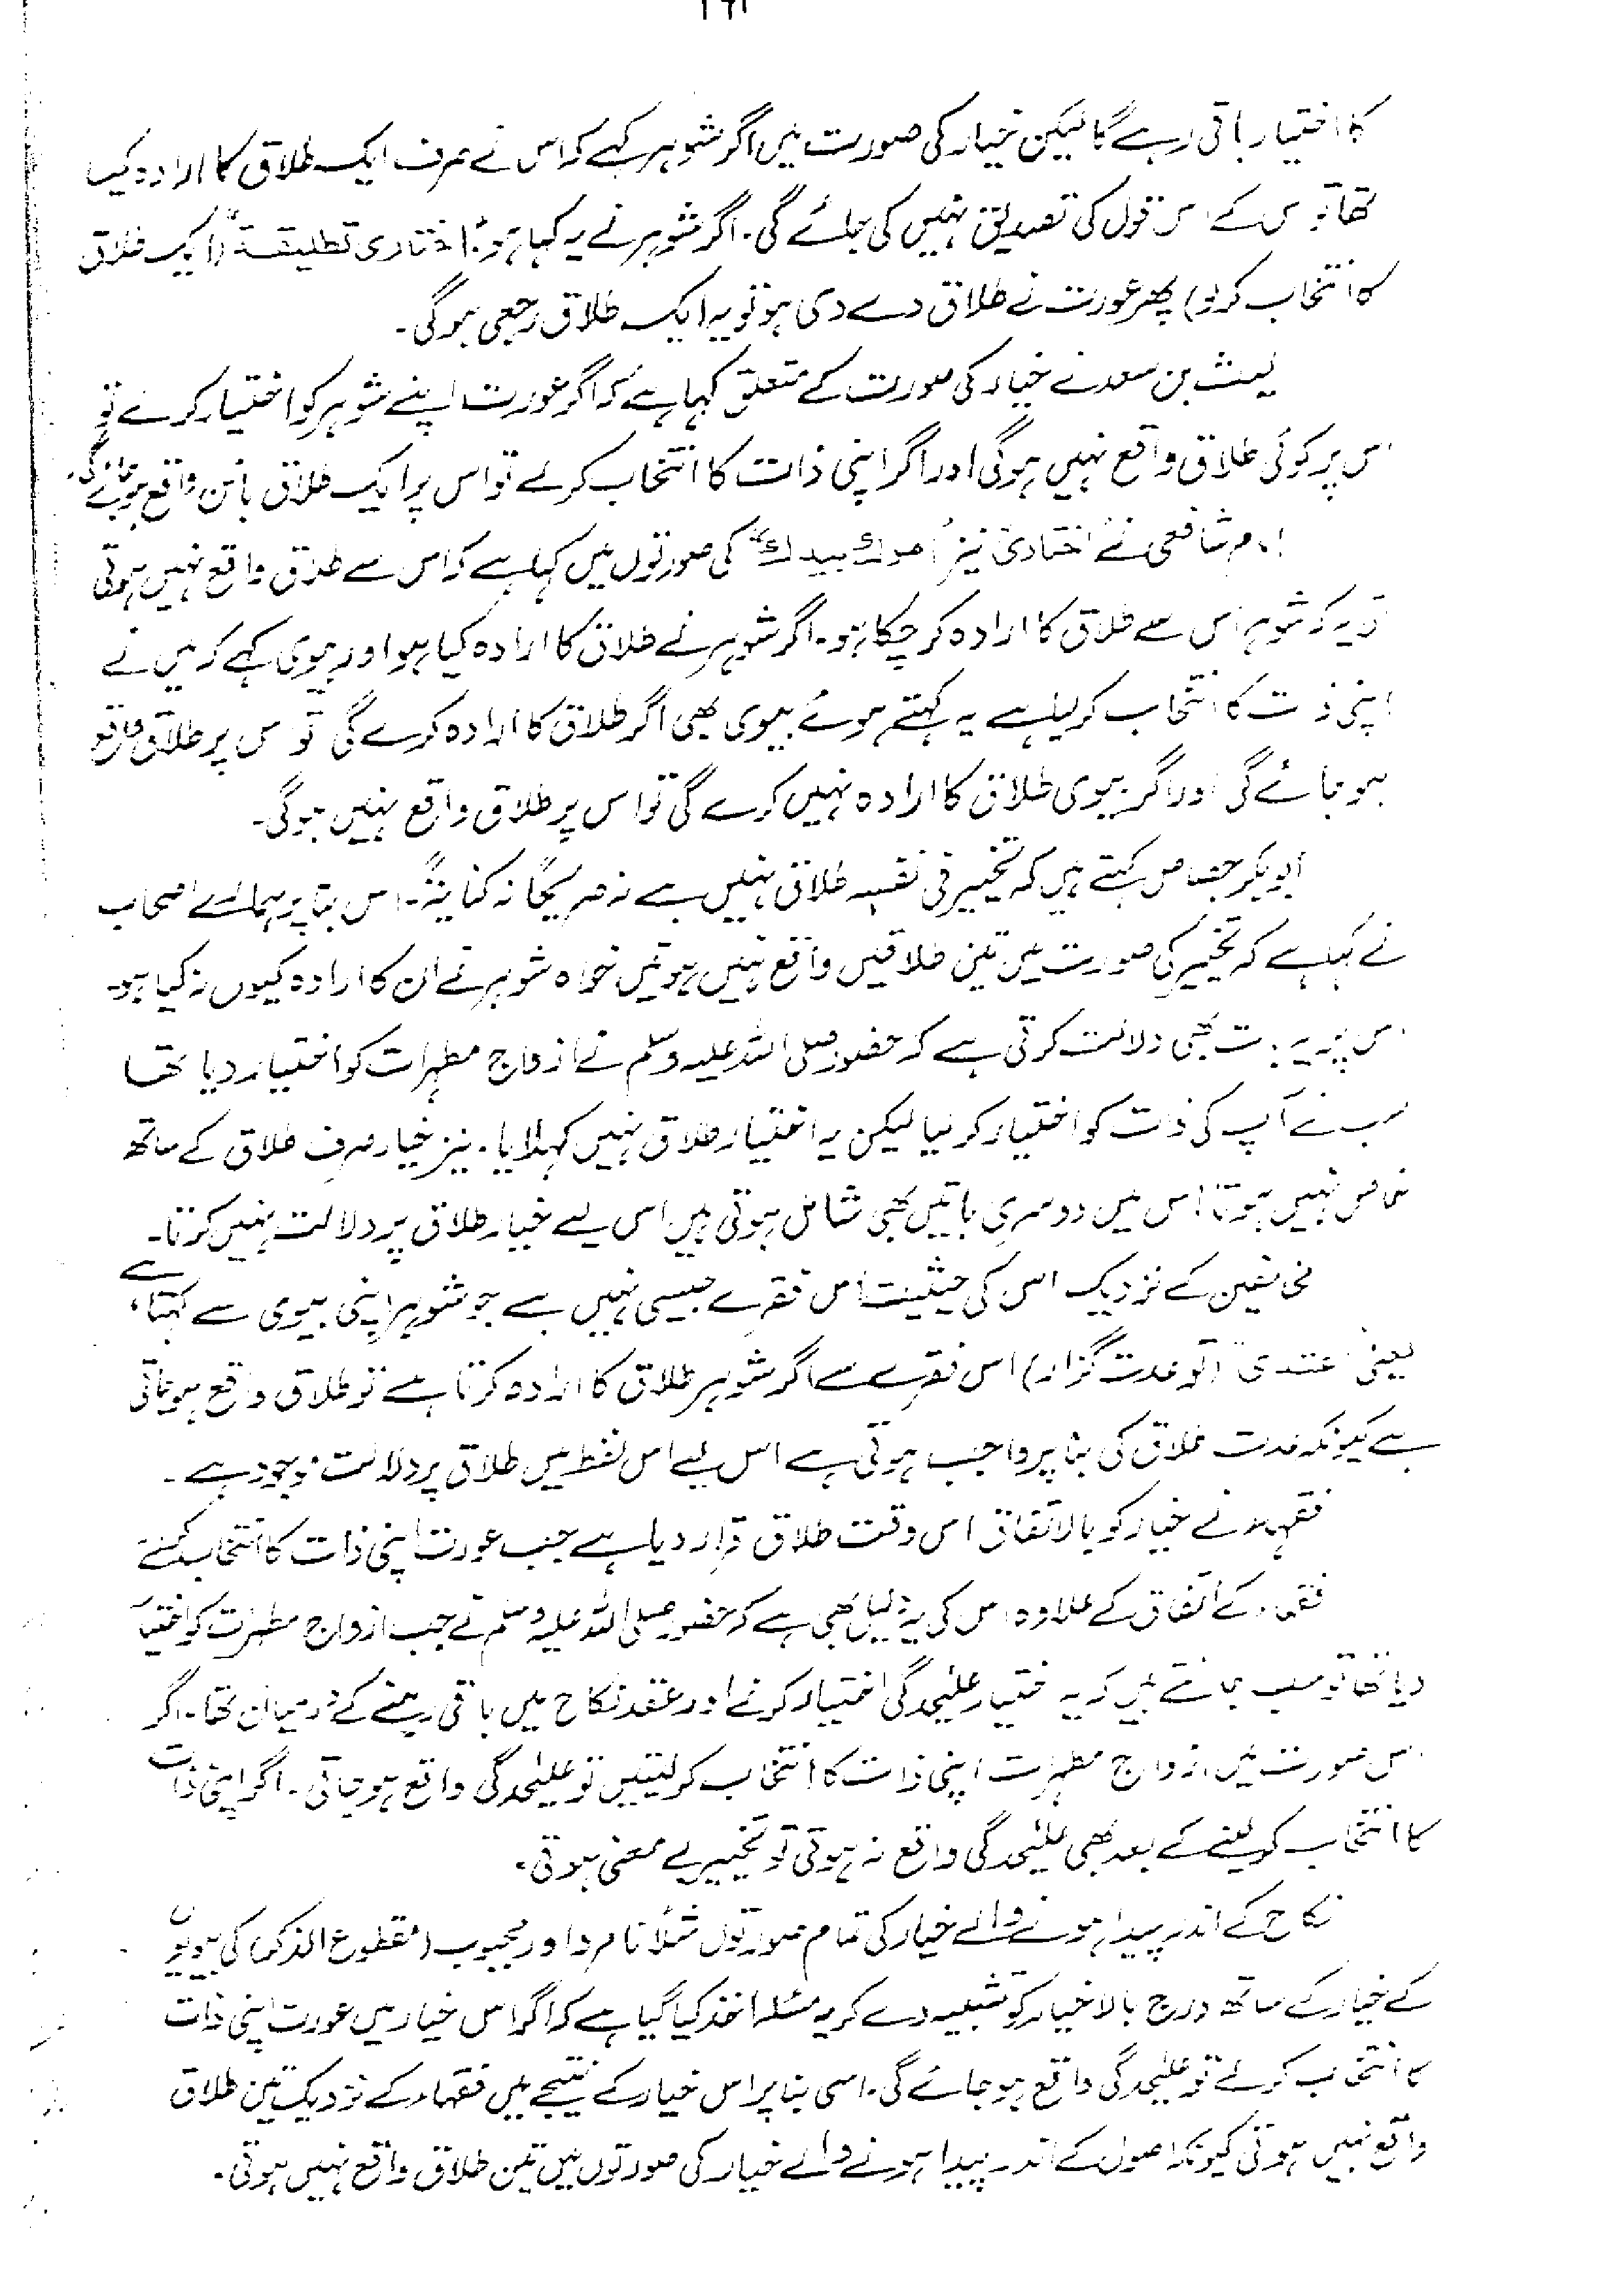 کا اختیار باقی رہے گا لیکن خیار کی صورت میں اگر شوہر کہے کہ اس نے صرف ایک طلاق کا ارادہ کیا
تھا تو اس کے اس قول کی تصدیق نہیں کی جائے گی۔ اگر شوہر نے یہ کہا ہو "اختاری تطلیقۃ" (ایک طلاق
کا انتخاب کر لو) پھر عورت نے طلاق دے دی ہو تو یہ ایک طلاق رجعی ہو گی۔
لیث بن سعد نے خیار کی صورت کے متعلق کہا ہے کہ اگر عورت اپنے شوہر کو اختیار کرے تو
اس پر کوئی طلاق واقع نہیں ہوگی اور اگر اپنی ذات کا انتخاب کرلے تو اس پر ایک طلاق بائن واقع ہوجائے گی۔
امام شافعی نے "اختاری" نیز "امرك بيدك" کی صورتوں میں کہا ہے کہ اس سے طلاق واقع نہیں ہوتی
الّا یہ کہ شوہر اس سے طلاق کا ارادہ کرچکا ہو۔ اگر شوہر نے طلاق کا ارادہ کیا ہو اور بیوی کہے کہ میں نے
اپنی ذات کا انتخاب کرلیا ہے یہ کہتے ہوئے بیوی بھی اگر طلاق کا ارادہ کرے گی تو اس پر طلاق واقع
ہو جائے گی اور اگر بیوی طلاق کا ارادہ نہیں کرے گی تو اس پر طلاق واقع نہیں ہوگی۔
ابوبکر جصاص کہتے ہیں کہ تخییر فی نفسہ طلاق نہیں ہے نہ صریحًا نہ کنایۃً۔ اس بنا پر ہمارے اصحاب
نے کہا ہے کہ تخییر کی صورت میں تین طلاقیں واقع نہیں ہوتیں خواہ شوہر نے ان کا ارادہ کیوں نہ کیا ہو۔
اس پر یہ بات بھی دلالت کرتی ہے کہ حضور صلی اللہ علیہ وسلم نے ازواج مطہرات کو اختیار دیا تھا
سب نے آپ کی ذات کو اختیار کر لیا لیکن یہ اختیار طلاق نہیں کہلایا۔ نیز خیار صرف طلاق کے ساتھ
خاص نہیں ہوتا اس میں دوسری باتیں بھی شامل ہوتی ہیں اس لیے خیار طلاق پر دلالت نہیں کرتا۔
مخالفین کے نزدیک اس کی حیثیت اس فقرے جیسی نہیں ہے جو شوہر اپنی بیوی سے کہتا ہے
یعنی "اعتدی" (تو عدت گزار) اس فقرے سے اگر شوہر طلاق کا ارادہ کرتا ہے تو طلاق واقع ہوجاتی
ہے کیونکہ عدت طلاق کی بنا پر واجب ہوتی ہے اس لیے اس لفظ میں طلاق پر دلالت موجود ہے۔
فقہاء نے خیار کو بالاتفاق اس وقت طلاق قرار دیا ہے جب عورت اپنی ذات کا انتخاب کرلے
فقہاء کے اتفاق کے علاوہ اس کی یہ دلیل بھی ہے کہ حضور صلی اللہ علیہ وسلم نے جب ازواج مطہرات کو اختیار
دیا تھا تو سب جانتے ہیں کہ یہ اختیار علیٰحدگی اختیار کرنے اور عقد نکاح میں باقی رہنے کے درمیان تھا۔ اگر
اس صورت میں ازواج مطہرات اپنی ذات کا انتخاب کرلیتیں تو علیٰحدگی واقع ہوجاتی۔ اگر اپنی ذات
کا انتخاب کرلینے کے بعد بھی علیٰحدگی واقع نہ ہوتی تو تخییر بے معنی ہوتی۔
نکاح کے اندر پیدا ہونے والے خیار کی تمام صورتوں مثلاً نامرد اور مجبوب (مقطوع الذکر) کی بیویوں
کے خیار کے ساتھ درج بالا خیار کو تشبیہ دے کر یہ مسئلہ اخذ کیا گیا ہے کہ اگر اس خیار میں عورت اپنی ذات
کا انتخاب کرلے تو علیٰحدگی واقع ہوجائے گی۔ اسی بنا پر اس خیار کے نتیجے میں فقہاء کے نزدیک تین طلاق
واقع نہیں ہوتی کیونکہ اصول کے اندر پیدا ہونے والے خیار کی صورتوں میں تین طلاق واقع نہیں ہوتی۔